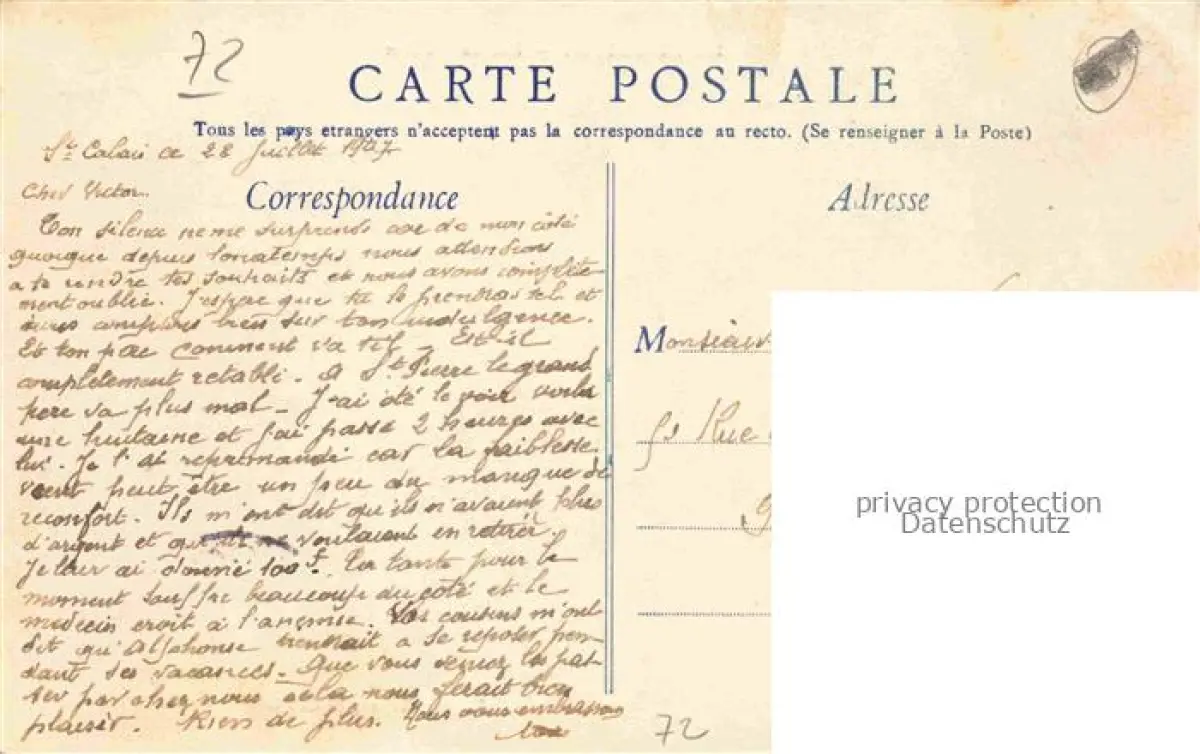 72
CARTE POSTALE
Tous les pays etrangers n'acceptent pas la correspondance au recto. (Se renseigner à la Poste)
St Calais ce 28 Juillet 1907
Correspondance
Adresse
Cher Victor.
Ton silence ne me surprends car de mon côté
quoique depuis lontemps nous attendions
a te rendre tes souhaits et nous avons complète
ment oublié. J'espere que tu le prendras tel et
nous comptons bien sur ton indulgence.
Et ton père comment va t'il - Est-il
completement retabli. A St Pierre le grand
pere va plus mal - J'ai été le voir voila
une huitaine et j'ai passé 2 heures avec
lui. Je l'ai reprimandé car la faiblesse
vient peut être un peu du manque de
reconfort. Ils m'ont dit qu'ils n'avaient plus
d'argent et qu' voulaient en retirer.
Je leur ai donné 100f. Ta tante pour le
moment souffre beaucoup du côté et le
medecin croit à l'angine. Vos cousins m'ont
dit qu'Alphonse viendrait a se reposer pen-
dant ses vacances - Que vous veniez les pas-
ser par chez nous cela nous ferait bien
plaisir. Rien de plus. Nous vous embrassons
tous
Monsieur
Rue
72
privacy protection
Datenschutz